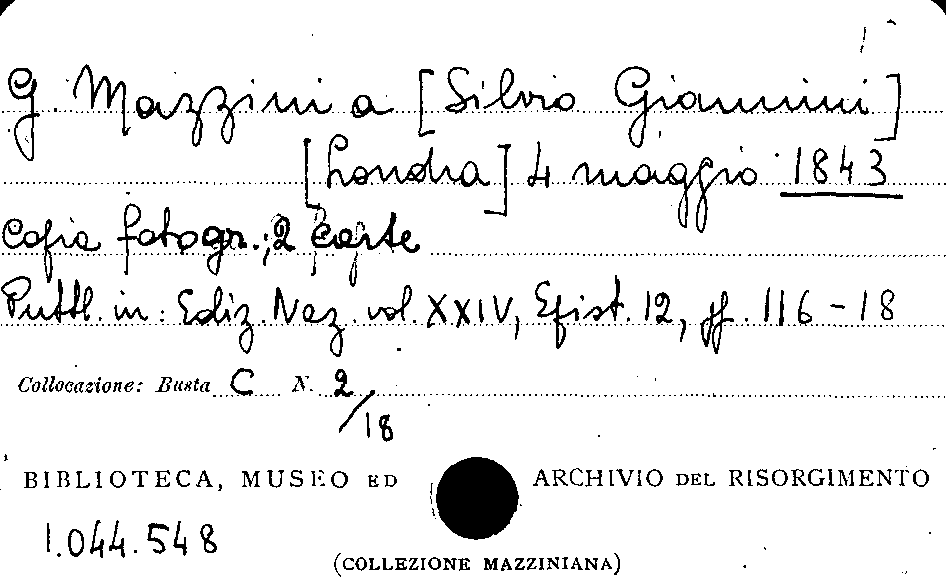 G. Mazzini a [Silvio Giannini]
[Londra] 4 maggio 1843
Copia fotogr.; 2 carte
Pubbl. in: Ediz. Naz. vol. XXIV, Epist. 12, pp. 116-18
Collocazione: Busta C N. 2/18
BIBLIOTECA, MUSEO ED ARCHIVIO DEL RISORGIMENTO
1.044.548
(COLLEZIONE MAZZINIANA)